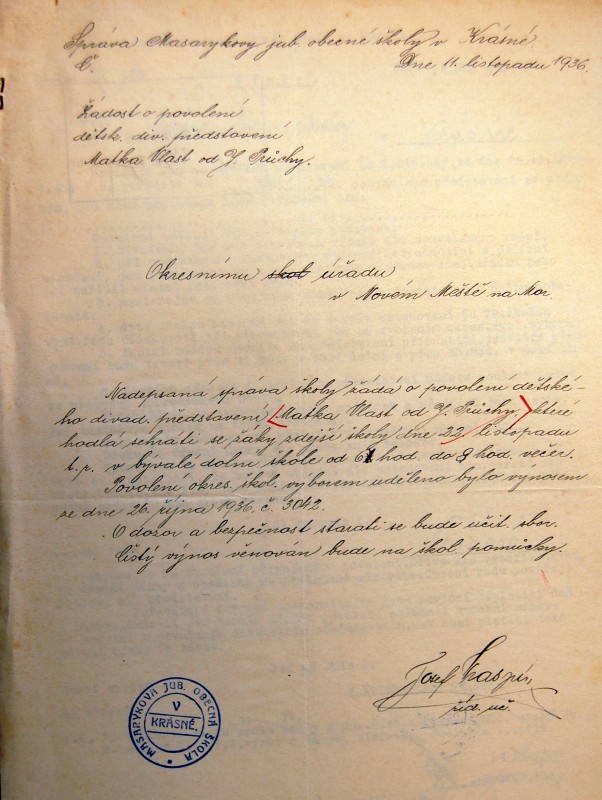 Správa Masarykovy jub. obecné školy v Krásné
Č. Dne 11. listopadu 1936.
Žádost o povolení
dětsk. div. představení
Matka Vlast od J. Průchy.
Okresnímu škol úřadu
v Novém Městě na Mor.
Nadepsaná správa školy žádá o povolení dětské-
ho divad. představení Matka Vlast od J. Průchy, které
hodlá sehráti se žáky zdejší školy dne 22. listopadu
t. r. v bývalé dolní škole od 6 hod. do 9 hod. večer.
Povolení okres. škol. výborem uděleno bylo výnosem
ze dne 26. října 1936, č. 3042.
O dozor a bezpečnost starati se bude učit. sbor.
Čistý výnos věnován bude na škol. pomůcky.
Josef
říd. uč.
MASARYKOVA JUB. OBECNÁ ŠKOLA
V
KRÁSNÉ.